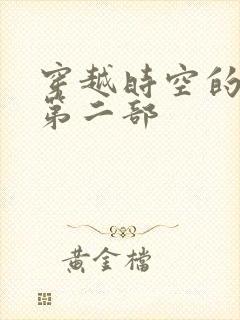 穿越時空的
第二部
黃金檔